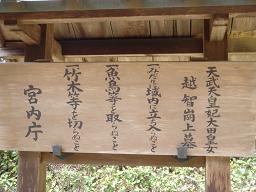 天武天皇妃大田皇女
越智崗上墓
一みだりに域内に立ち入らぬこと
一魚鳥等を取らぬこと
一竹木等を切らぬこと
宮内庁